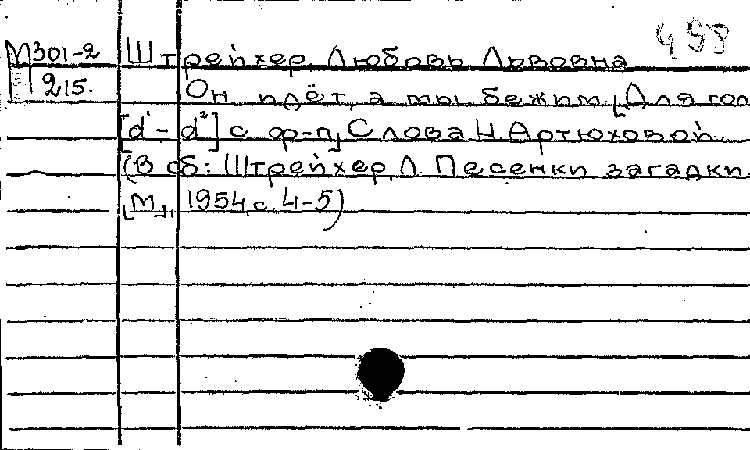 458
М301-2 Штрейхер, Любовь Львовна
П 215. Он идёт, а мы бежим. [Для гол.
[d¹ - d²] с ф-п] Слова Н Артюховой
(В сб: Штрейхер, Л Песенки загадки
[М], 1954, с. 4-5)